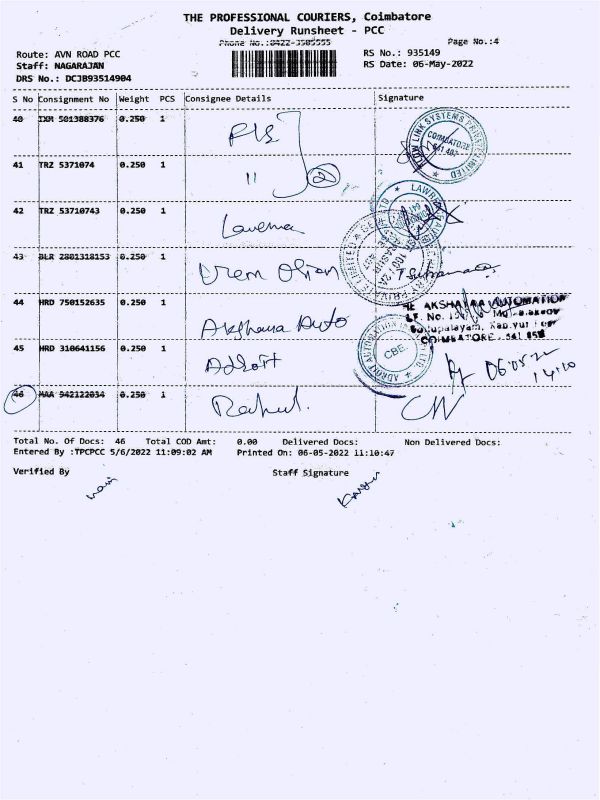 THE PROFESSIONAL COURIERS, Coimbatore
Delivery Runsheet - PCC
Phone No.:0422-3505555
Page No.:4
Route: AVN ROAD PCC
RS No.: 935149
Staff: NAGARAJAN
RS Date: 06-May-2022
DRS No.: DCJB93514904
S No Consignment No Weight PCS Consignee Details Signature
40 IXM 501388376 0.250 1
COIMBATORE
41 TRZ 5371074 0.250 1 11 2
42 TRZ 53710743 0.250 1
43 BLR 2801318153 0.250 1
44 HRD 750152635 0.250 1 Akshaya Auto
AKSHAYAA AUTOMATION
COIMBATORE
45 HRD 310641156 0.250 1 Adroit
CBE
06.05.22
14:10
46 MAA 942122034 0.250 1 Rahul. CW
Total No. Of Docs: 46 Total COD Amt: 0.00 Delivered Docs: Non Delivered Docs:
Entered By :TPCPCC 5/6/2022 11:09:02 AM Printed On: 06-05-2022 11:10:47
Verified By Staff Signature